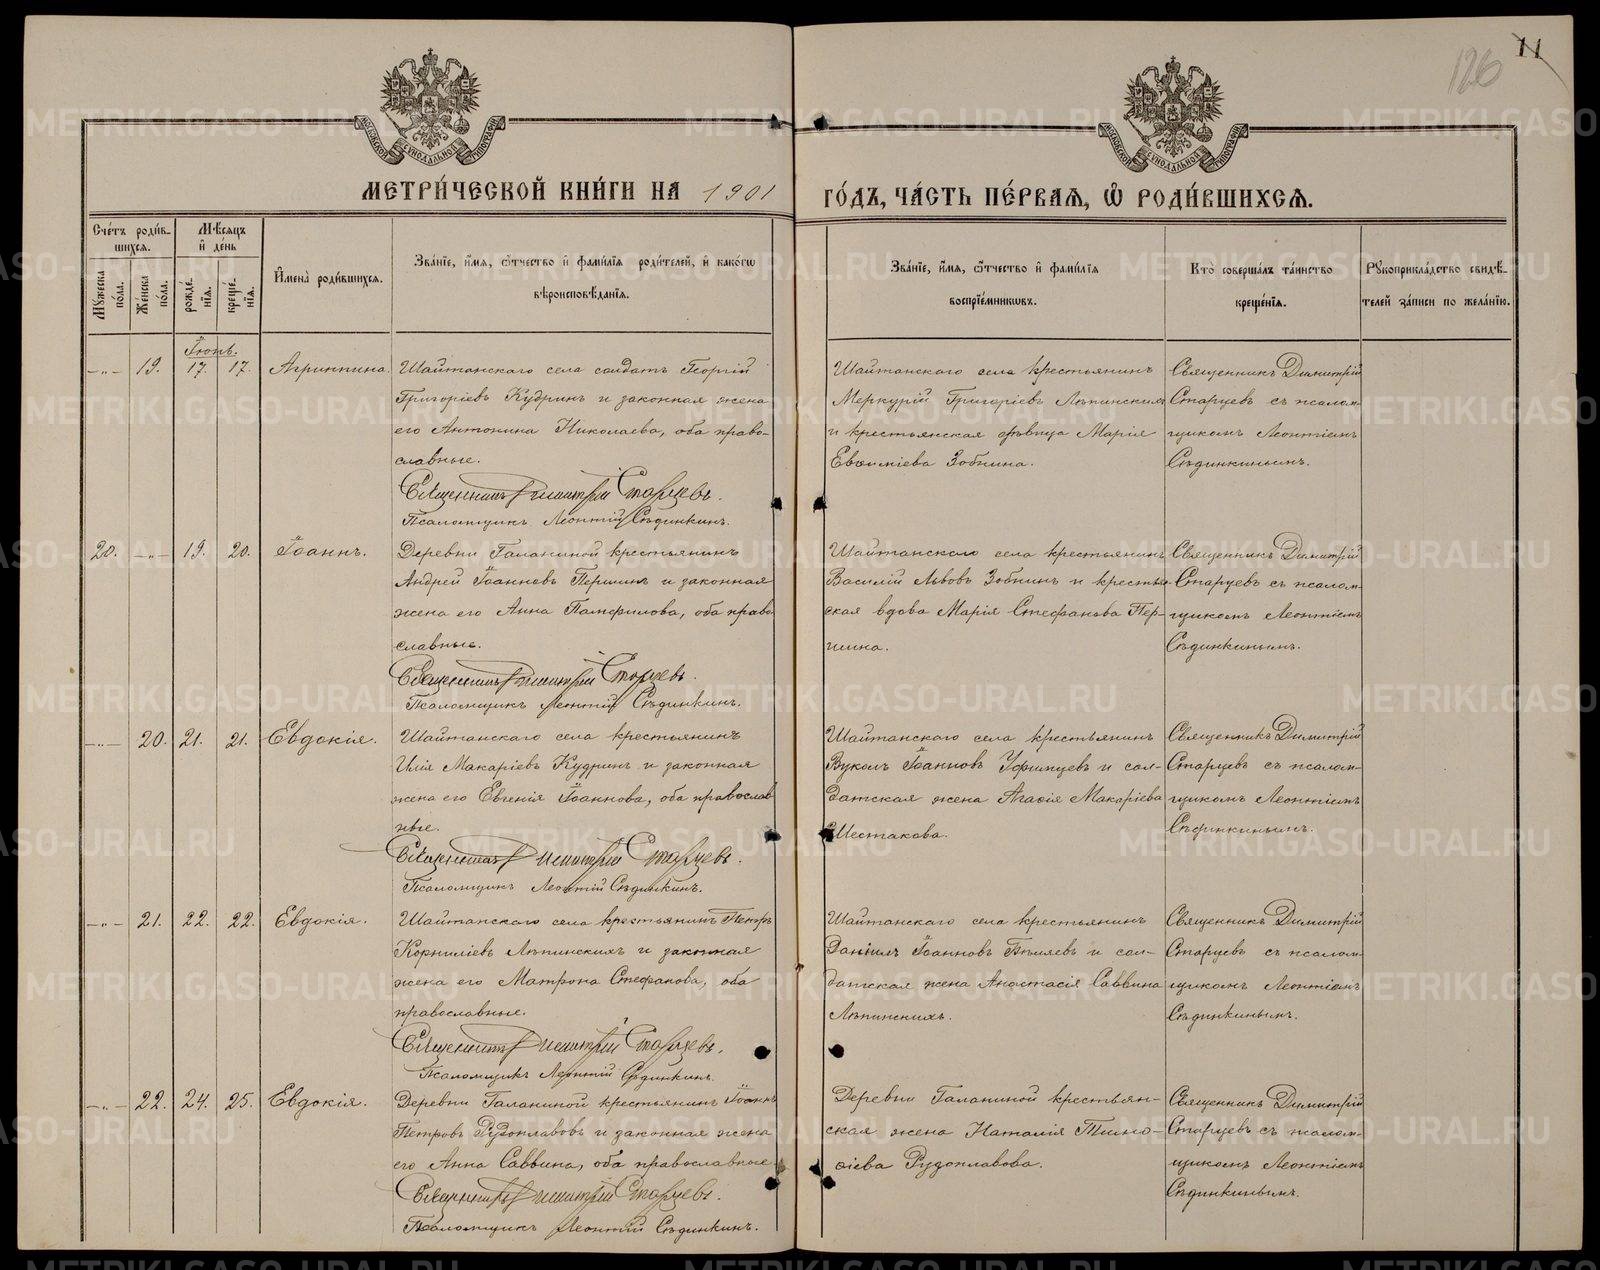 126
11
МОСКОВСКОЙ СѴНОДАЛЬНОЙ ТИПОГРАФІИ
МОСКОВСКОЙ СѴНОДАЛЬНОЙ ТИПОГРАФІИ
МЕТРИ́ЧЕСКОЙ КНИ́ГИ НА 1901 ГО́ДЪ, ЧА́СТЬ ПЕ́РВАѦ, Ѡ҆ РОДИ́ВШИХСѦ.
Сче́тъ роди́в-
шихсѧ.
Мꙋ́жеска по́ла.
Же́нска по́ла.
Мѣ́сѧцъ
и҆ де́нь
рожде́нїѧ.
креще́нїѧ.
И҆мена̀ роди́вшихсѧ.
Зва́нїе, и҆́мѧ, ѻ҆́тчество и҆ фамилїѧ роди́телей, и҆ како́гѡ
вѣроисповѣ́данїѧ.
Зва́нїе, и҆́мѧ, ѻ҆́тчество и҆ фами́лїѧ
воспрїе́мникѡвъ.
Кто̀ соверша́лъ та́инство
креще́нїѧ.
Рꙋкоприкла́дство свидѣ́-
телей за́писи по жела́нїю.
Іюнь.
—„— 19. 17. 17. Агриппина.
Шайтанскаго села солдатъ Георгій
Григоріевъ Кудринъ и законная жена
его Антонина Николаева, оба право-
славные.
Священникъ Димитрій Старцевъ.
Псаломщикъ Леонтій Сѣдинкинъ.
Шайтанскаго села крестьянинъ
Меркурій Григоріевъ Лѣпинскихъ
и крестьянская дѣвица Марія
Евѳиміева Зобнина.
Священникъ Димитрій
Старцевъ съ псалом-
щикомъ Леонтіемъ
Сѣдинкинымъ.
20. —„— 19. 20. Іоаннъ.
Деревни Галаниной крестьянинъ
Андрей Іоанновъ Першинъ и законная
жена его Анна Памфилова, оба право-
славные.
Священникъ Димитрій Старцевъ.
Псаломщикъ Леонтій Сѣдинкинъ.
Шайтанскаго села крестьянинъ
Василій Львовъ Зобнинъ и крестьян-
ская вдова Марія Стефанова Пер-
шина.
Священникъ Димитрій
Старцевъ съ псалом-
щикомъ Леонтіемъ
Сѣдинкинымъ.
—„— 20. 21. 21. Евдокія.
Шайтанскаго села крестьянинъ
Илія Макаріевъ Кудринъ и законная
жена его Евгенія Іоаннова, оба православ
ные.
Священникъ Димитрій Старцевъ.
Псаломщикъ Леонтій Сѣдинкинъ.
Шайтанскаго села крестьянинъ
Вуколъ Іоанновъ Уфимцевъ и сол-
датская жена Агаѳія Макаріева
Шестакова.
Священникъ Димитрій
Старцевъ съ псалом-
щикомъ Леонтіемъ
Сѣдинкинымъ.
—„— 21. 22. 22. Евдокія.
Шайтанскаго села крестьянинъ Петръ
Корниліевъ Лѣпинскихъ и законная
жена его Матрона Стефанова, оба
православные.
Священникъ Димитрій Старцевъ.
Псаломщикъ Леонтій Сѣдинкинъ.
Шайтанскаго села крестьянинъ
Даніилъ Іоанновъ Бѣляевъ и сол-
датская жена Анастасія Саввина
Лѣпинскихъ.
Священникъ Димитрій
Старцевъ съ псалом-
щикомъ Леонтіемъ
Сѣдинкинымъ.
—„— 22. 24. 25. Евдокія.
Деревни Галаниной крестьянинъ Іоаннъ
Петровъ Рудоплавовъ и законная жена
его Анна Саввина, оба православные.
Священникъ Димитрій Старцевъ.
Псаломщикъ Леонтій Сѣдинкинъ.
Деревни Галаниной крестьян-
ская жена Наталія Тимо-
ѳіева Рудоплавова.
Священникъ Димитрій
Старцевъ съ псалом-
щикомъ Леонтіемъ
Сѣдинкинымъ.
METRIKI.GASO-URAL.RU